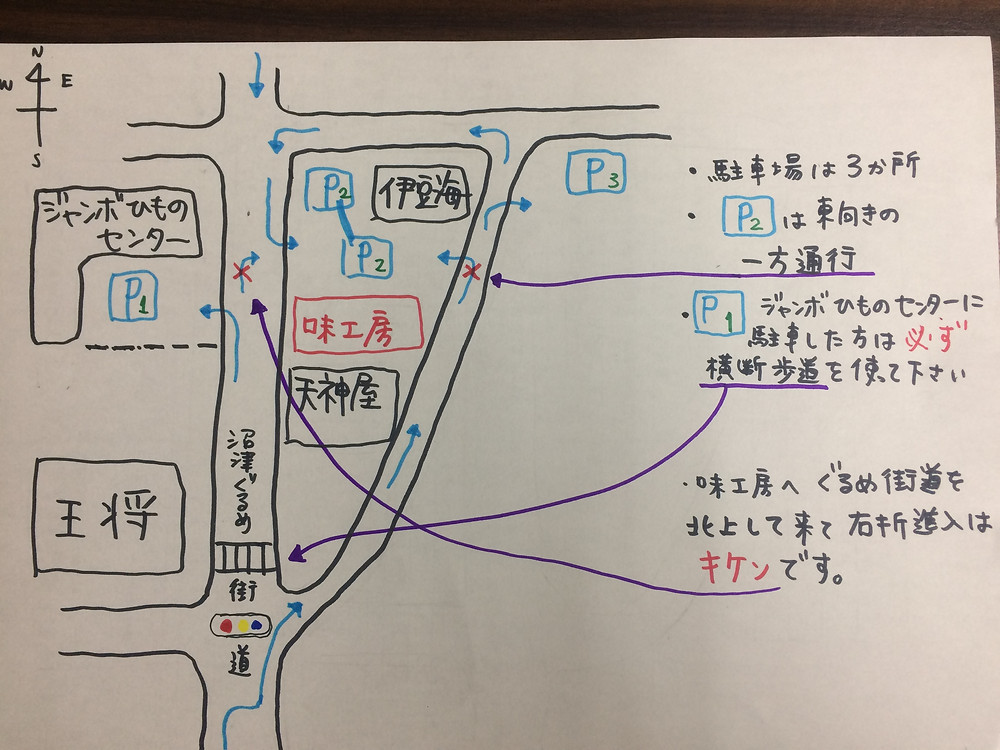 N
W
E
S
ジャンボひもの
センター
P1
P2
伊豆海
P2
味工房
天神屋
P3
沼津ぐるめ
街
道
王将
・駐車場は3か所
・P2は東向きの
一方通行
・P1 ジャンボひものセンターに
駐車した方は必ず
横断歩道を使って下さい
・味工房へ ぐるめ街道を
北上して来て右折進入は
キケンです。